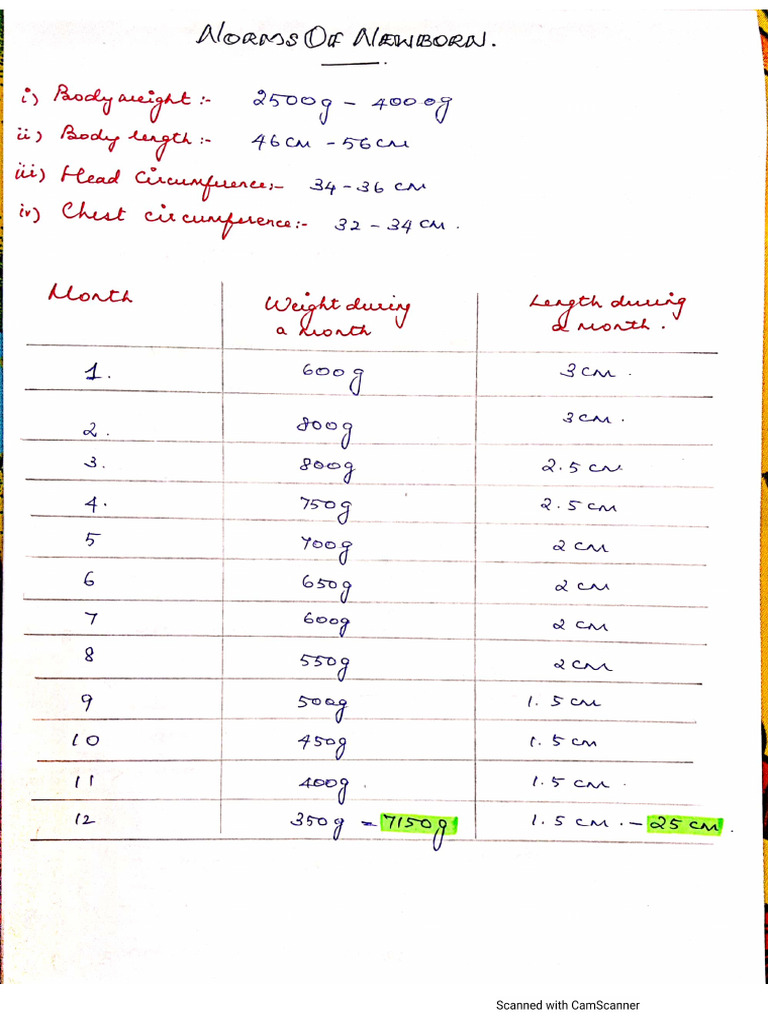 Norms Of Newborn.
i) Body weight :- 2500g - 4000g
ii) Body length :- 46 cm - 56 cm
iii) Head Circumference:- 34-36 cm
iv) Chest circumference:- 32 - 34 cm.
Month Weight during a month Length during a month.
1. 600g 3 cm.
2. 800g 3 cm.
3. 800g 2.5 cm
4. 750g 2.5 cm
5 700g 2 cm
6 650g 2 cm
7 600g 2 cm
8 550g 2 cm
9 500g 1.5 cm
10 450g 1.5 cm
11 400g. 1.5 cm.
12 350g = 7150g 1.5 cm. - 25 cm.
Scanned with CamScanner